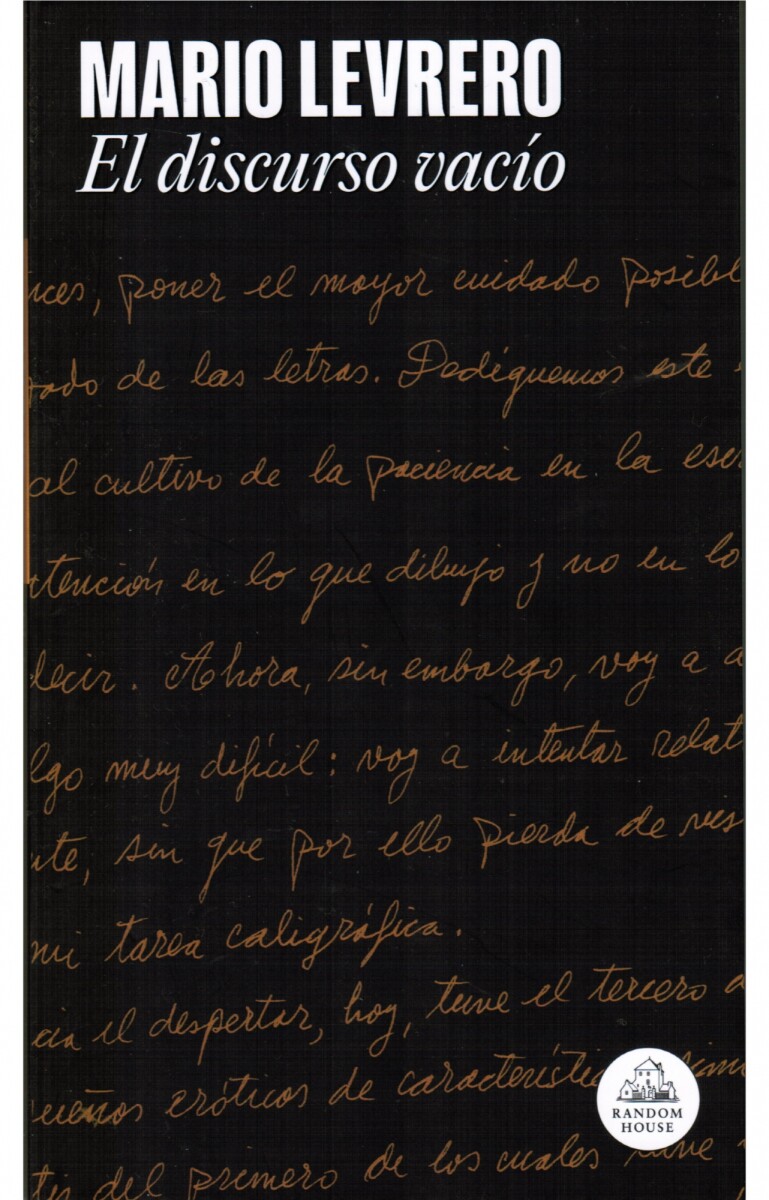 MARIO LEVRERO
El discurso vacío
nces, poner el mayor cuidado posibl
rado de las letras. Dediquemos este
al cultivo de la paciencia en la esc
tención en lo que dibujo y no en lo
decir. Ahora, sin embargo, voy a a
lgo muy difícil: voy a intentar relat
nte, sin que por ello pierda de vis
mi tarea caligráfica.
cia el despertar, hoy, tuve el tercero
sueños eróticos de característic
RANDOM
HOUSE
tes del primero de los cuales tuve